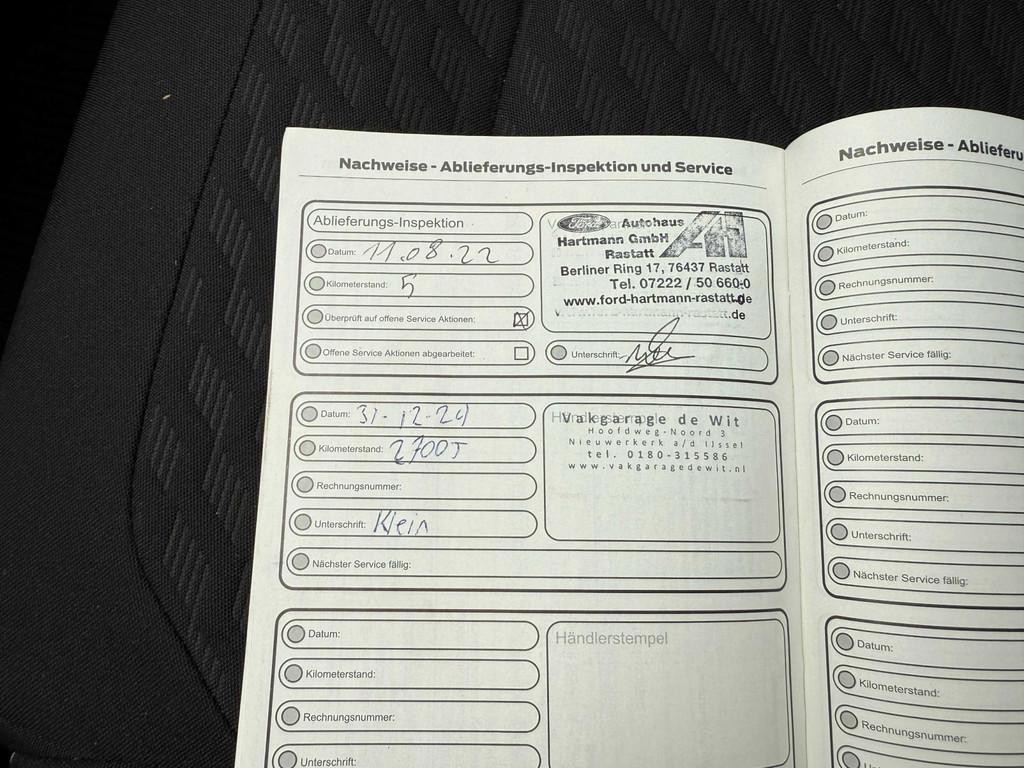 Nachweise - Ablieferungs-Inspektion und Service
Ablieferungs-Inspektion
Datum: 11.08.22
Kilometerstand: 5
Überprüft auf offene Service Aktionen:
Offene Service Aktionen abgearbeitet:
Ford Autohaus
Hartmann GmbH
Rastatt
Berliner Ring 17, 76437 Rastatt
Tel. 07222 / 50 660-0
www.ford-hartmann-rastatt.de
Unterschrift:
Datum: 31-12-24
Kilometerstand:
Rechnungsnummer:
Unterschrift: Klein
Nächster Service fällig:
Händlerstempel
Vakgarage de Wit
Hoofdweg-Noord 3
Nieuwerkerk a/d IJssel
tel. 0180-315586
www.vakgaragedewit.nl
Datum:
Kilometerstand:
Rechnungsnummer:
Unterschrift:
Händlerstempel
Nachweise - Ablieferu
Datum:
Kilometerstand:
Rechnungsnummer:
Unterschrift:
Nächster Service fällig:
Datum:
Kilometerstand:
Rechnungsnummer:
Unterschrift:
Nächster Service fällig:
Datum:
Kilometerstand:
Rechnungsnummer: